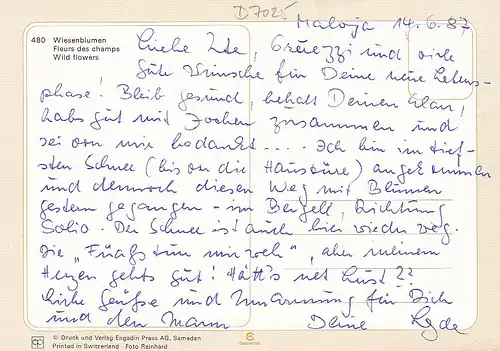 D7025
Maloja 14.6.87
480 Wiesenblumen
Fleurs des champs
Wild flowers
Liebe Ute, Grüezzi und viele
gute Wünsche für Deine neue Lebens-
phase! Bleib gesund, behalt Deinen Elan,
habs gut mit Jochen zusammen und
sei von mir bedankt .... Ich bin im tief-
sten Schnee (bis an die Haustüre) angekommen
und dennoch diesen Weg mit Blumen
gestern gegangen - im Bergell, Richtung
Soglio. Der Schnee ist auch hier wieder weg.
Die "Füaß tun mir weh", aber meinem
Herzen gehts gut! Hätt's net Lust??
Liebe Grüße und Umarmung für Dich
und den Mann Deine
© Druck und Verlag Engadin Press AG, Samedan
Printed in Switzerland Foto Reinhard